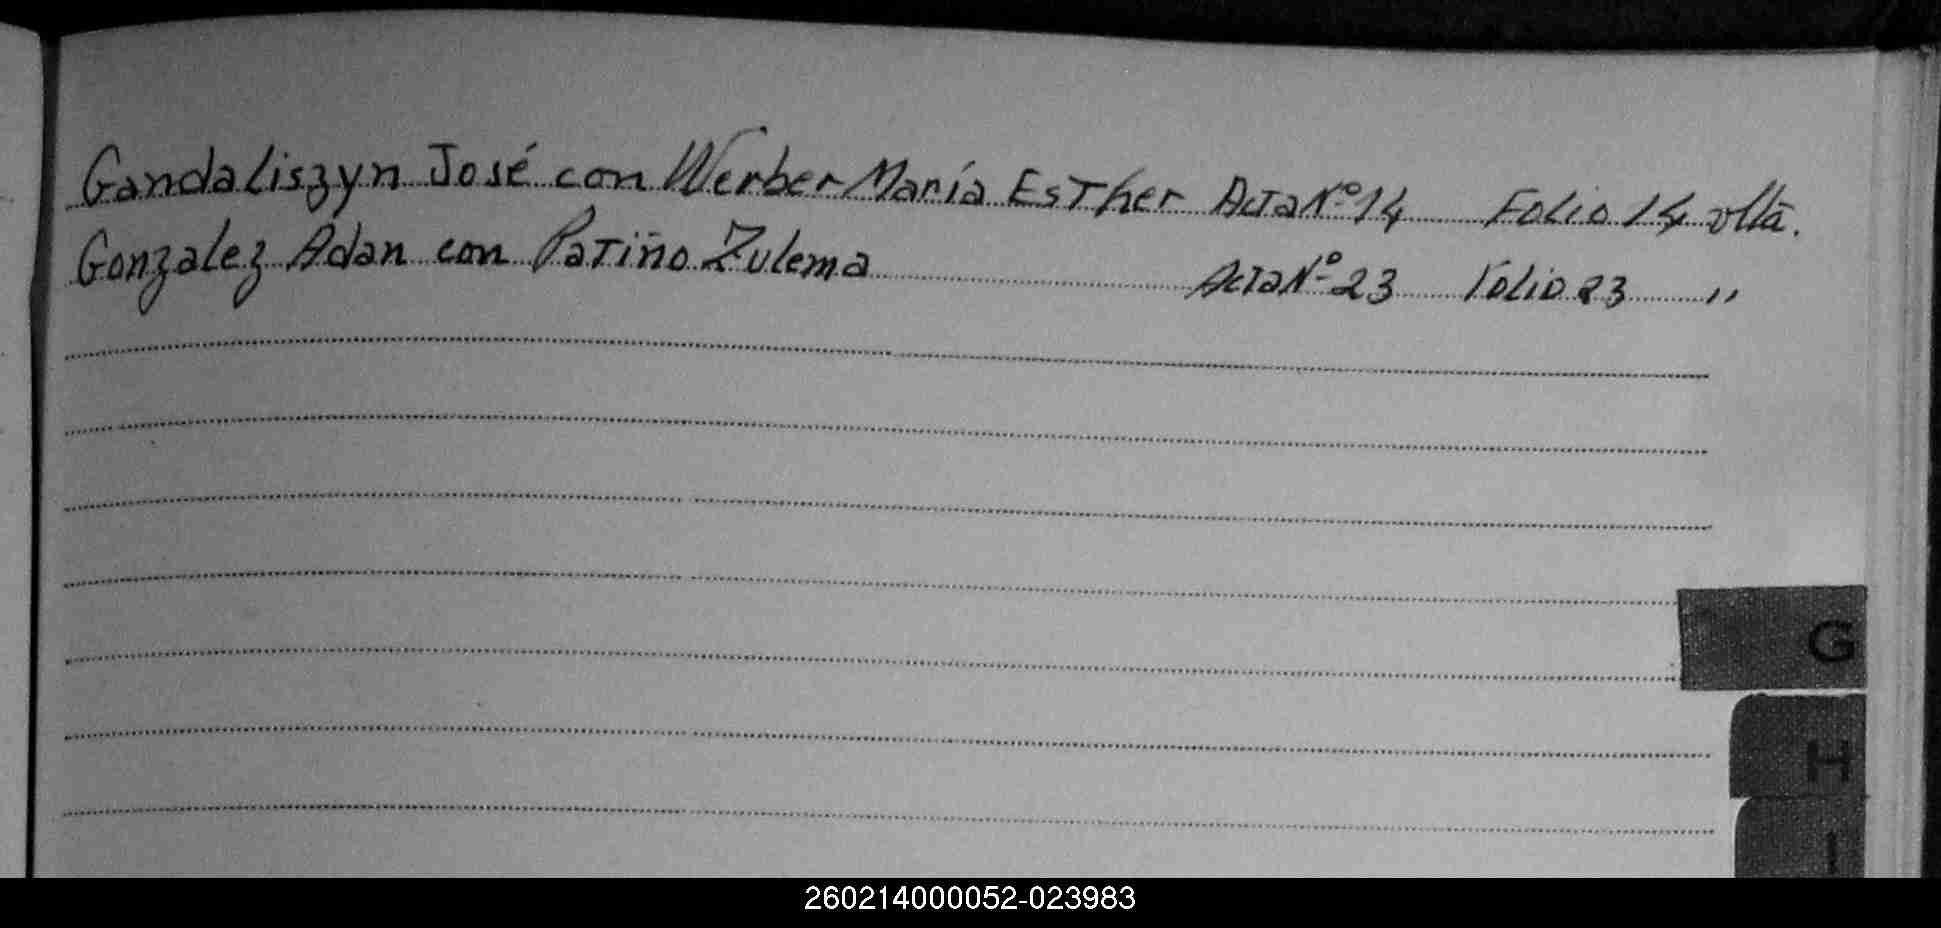 Gandaliszyn José con Werber María Esther Acta Nº 14 Folio 14 vlta.
Gonzalez Adan con Patiño Zulema Acta Nº 23 Folio 23 "
G
H
I
260214000052-023983